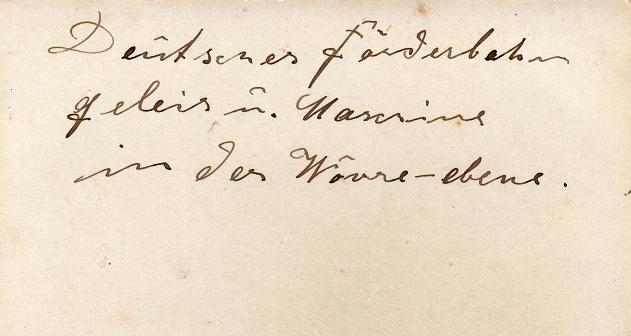 Deutsches Förderbahn
geleis u. Maschine
in der Wôvre-ebene.